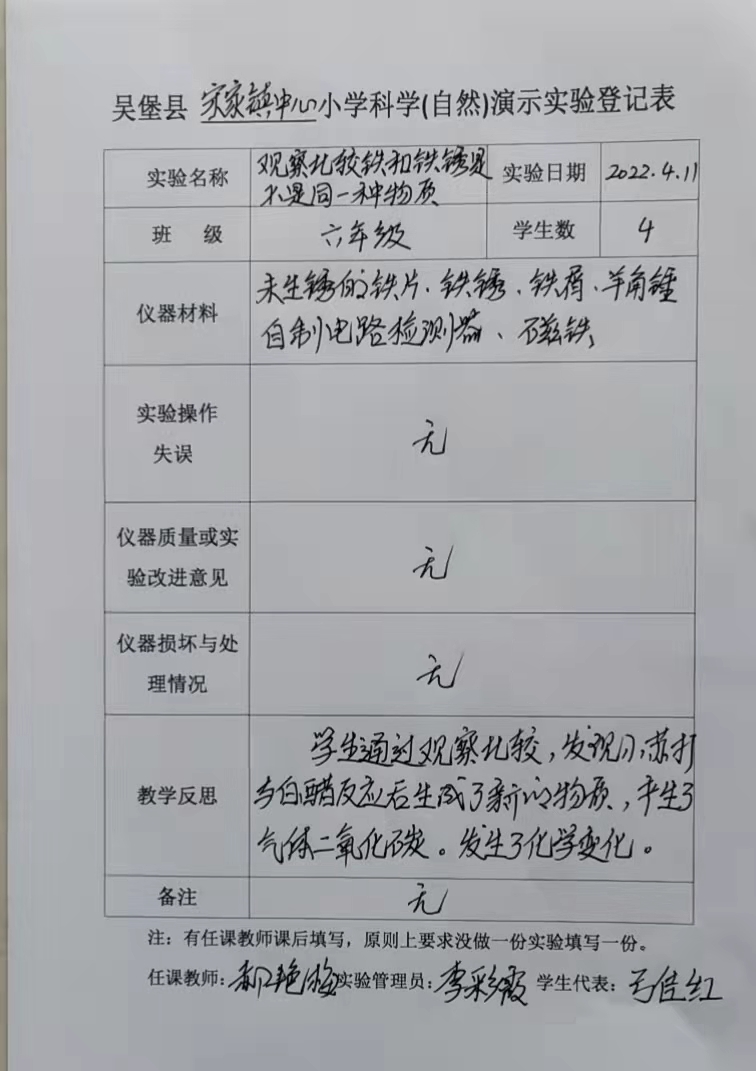 吴堡县 宋家镇中心小学科学(自然)演示实验登记表
实验名称 观察比较铁和铁锈是 实验日期 2022.4.11
不是同一种物质
班 级 六年级 学生数 4
仪器材料 未生锈的铁片、铁锈、铁屑、羊角锤
自制电路检测器、磁铁
实验操作
失误 无
仪器质量或实
验改进意见 无
仪器损坏与处
理情况 无
学生通过观察比较,发现小苏打
教学反思 与白醋反应后生成了新的物质,产生了
气体二氧化碳。发生了化学变化。
备注 无
注:有任课教师课后填写,原则上要求没做一份实验填写一份。
任课教师:郝艳梅 实验管理员:李彩霞 学生代表:佳红